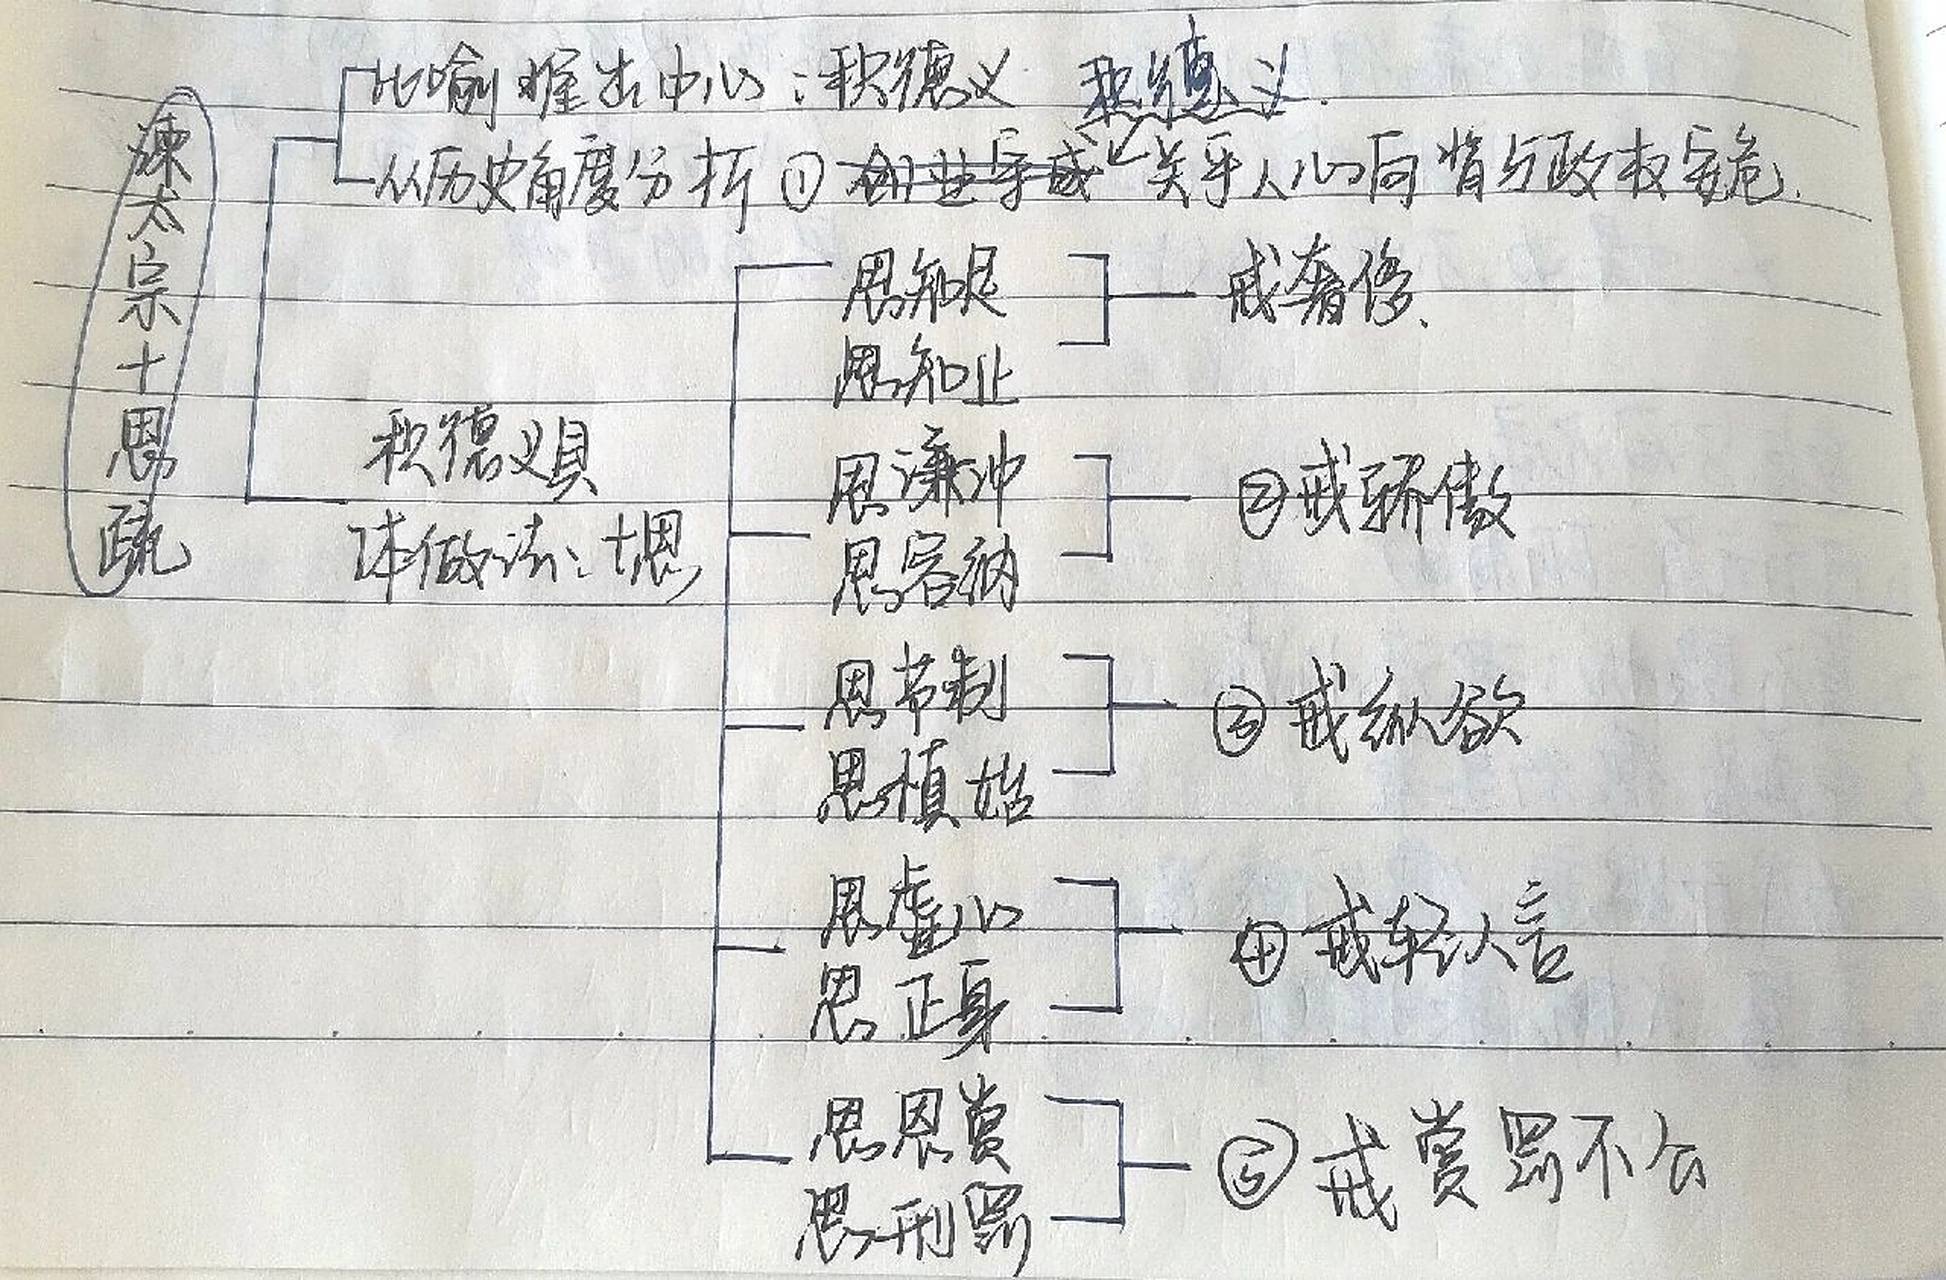 谏太宗十思疏
比喻推出中心：积德义 积德义
从历史角度分析 ① 创业守成 关乎人心向背与政权安危.
积德义具
体做法：十思
思知足
思知止
戒奢侈、
思濂冲
思容纳
②戒骄傲
思节制
思慎始
③ 戒纵欲
思虚心
思正身
④ 戒轻人言
思恩赏
思刑罚
⑤ 戒赏罚不公